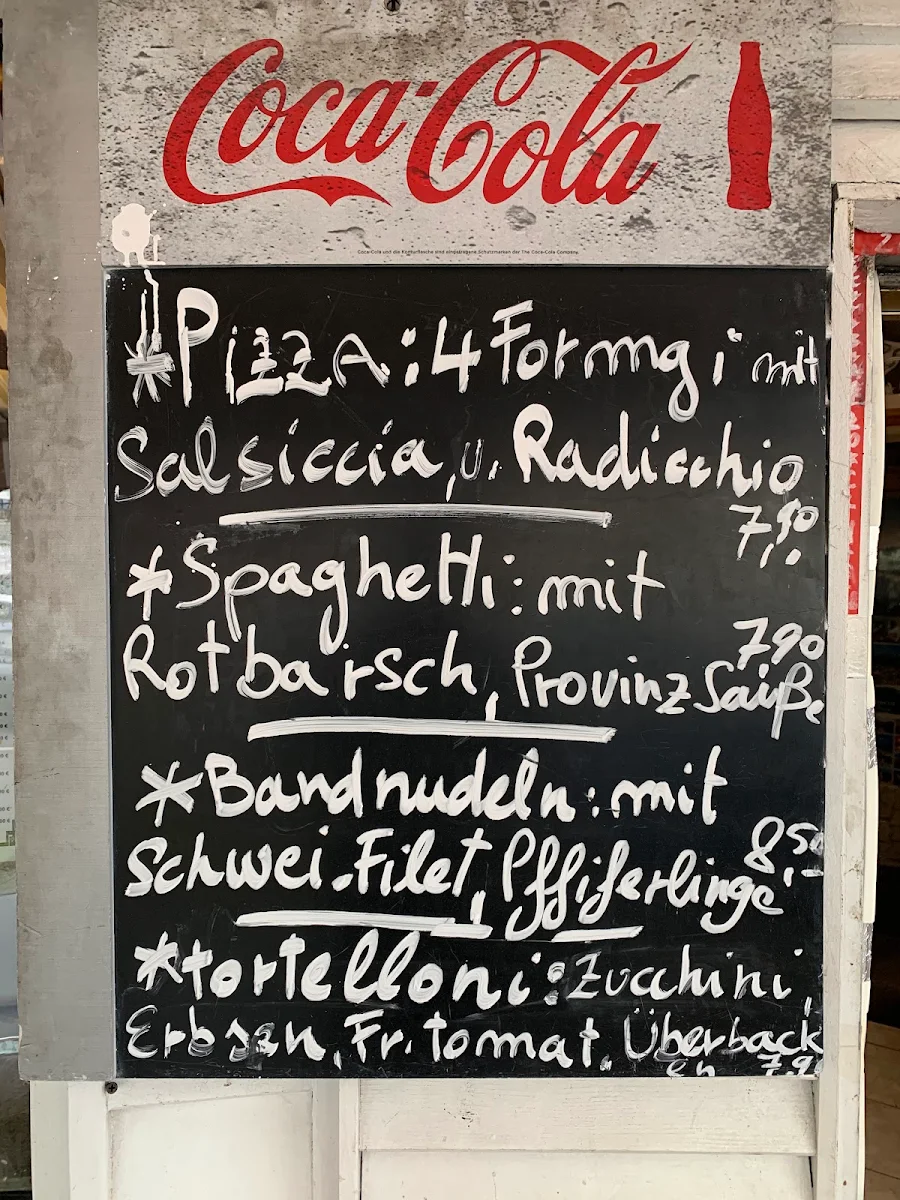 Coca-Cola
Coca-Cola und die Konturflasche sind eingetragene Schutzmarken der The Coca-Cola Company
*Pizza: 4 Formgi mit
Salsiccia, u. Radicchio
7,90
*Spaghetti: mit
7,90
Rotbarsch, Provinz Sauße
*Bandnudeln: mit
8,50
Schwei. Filet, Pffiferlinge
*tortelloni: Zucchini,
Erbsen, Fr. tomat. Überback
en 7,9